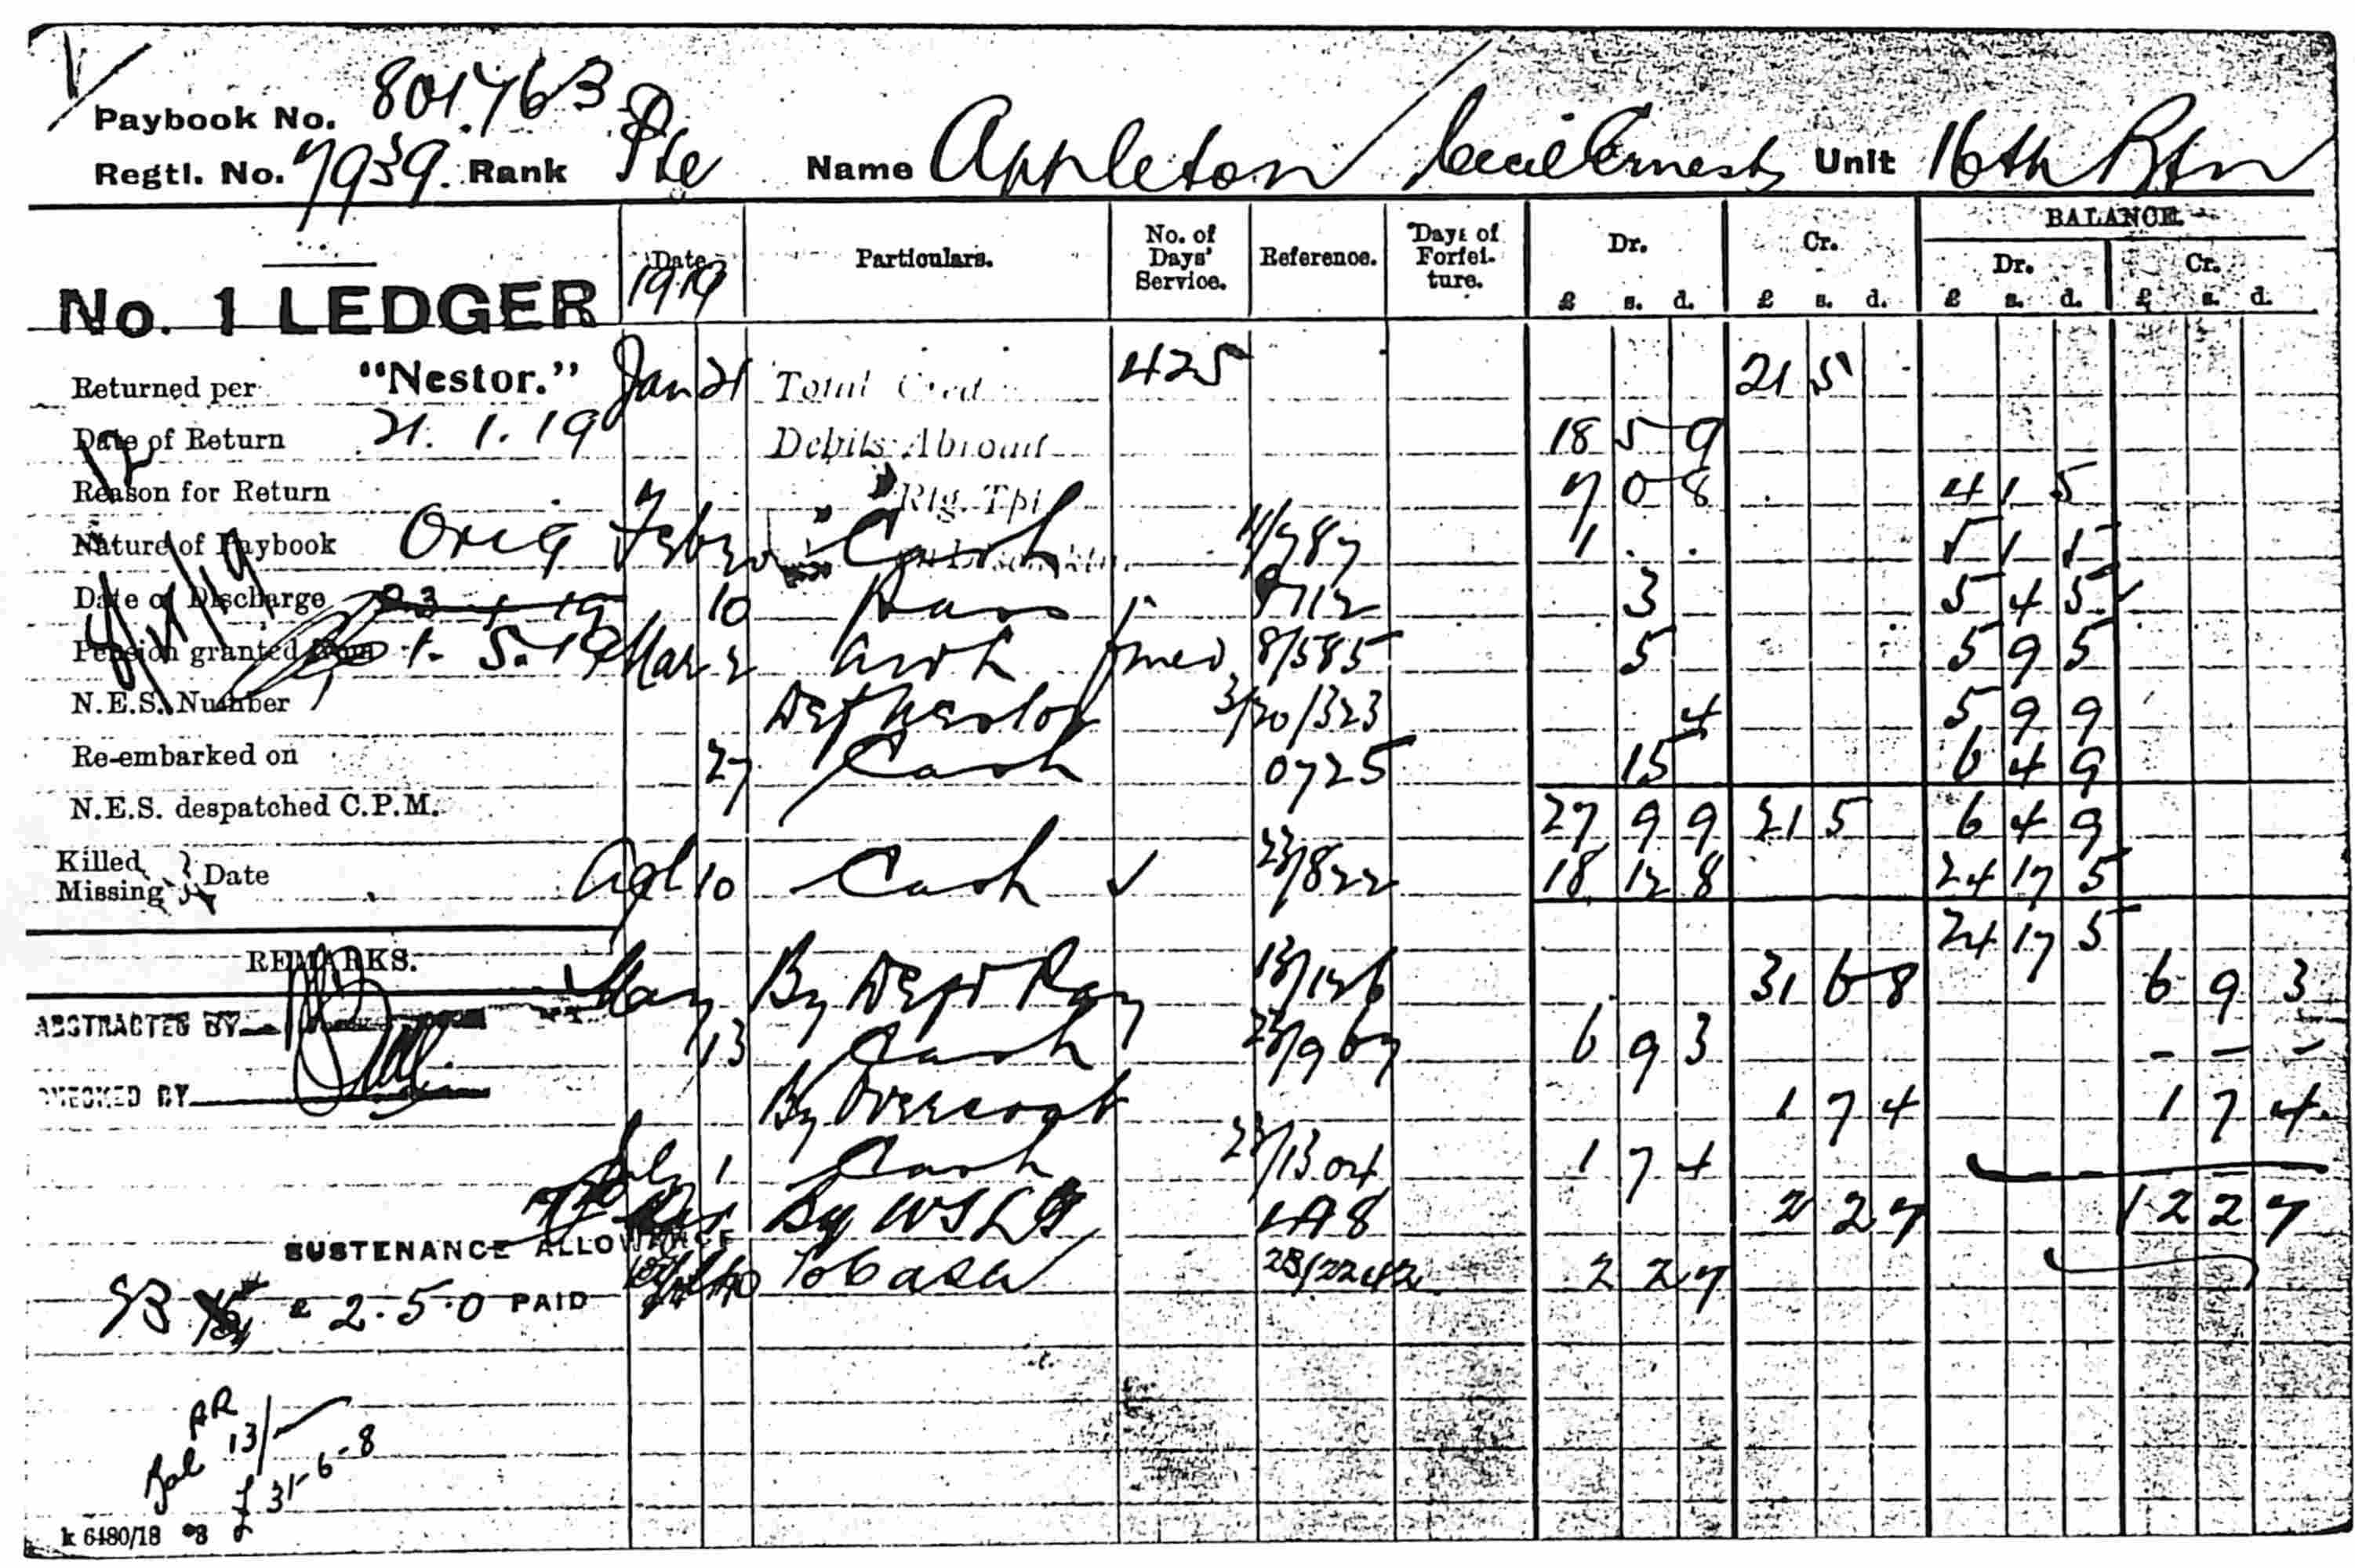 Paybook No. 801763
Regtl. No. 7939. Rank Pte Name Appleton Cecil Ernest Unit 16th Btn
Date Particulars. No. of Days' Service. Reference. Days of Forfei-ture. Dr. Cr. BALANCE.
Dr. Cr.
1919 £ s. d. £ s. d. £ s. d. £ s. d.
No. 1 LEDGER
Returned per "Nestor." Jan 21 Total Cred 425 21 5
Date of Return 21. 1. 19 Debits Abroad 18 5 9
Reason for Return Rtg. Tpt 7 0 8 4 1 5
Nature of Paybook Orig Feb Cash 11/787 1 . . 5 1 5
Date of Discharge 23 1 19 10 9712 3 5 4 5
Pension granted from 1. 5. 19 Mar 2 fined 8/585 5 5 9 5
N.E.S. Number 3/20/323 4 5 9 9
Re-embarked on 27 Cash 0725 15 6 4 9
N.E.S. despatched C.P.M. 27 9 9 21 5 6 4 9
Killed Missing } Date Apl 10 Cash ✓ 23/822 18 12 8 24 17 5
24 17 5
REMARKS.
May By Dept Pay 13/126 31 6 8 6 9 3
ABSTRACTED BY
13 Cash 23/967 6 9 3 - - -
CHECKED BY By Overcoat 1 7 4 1 7 4
July 1 Cash 23/1304 1 7 4
By WSLB LA8 2 2 7 2 2 7
SUSTENANCE ALLOWANCE
£ 2.5.0 PAID To Cash 23/22442 2 2 7
AR
Bal 13/
£31-6-8
k 6480/18